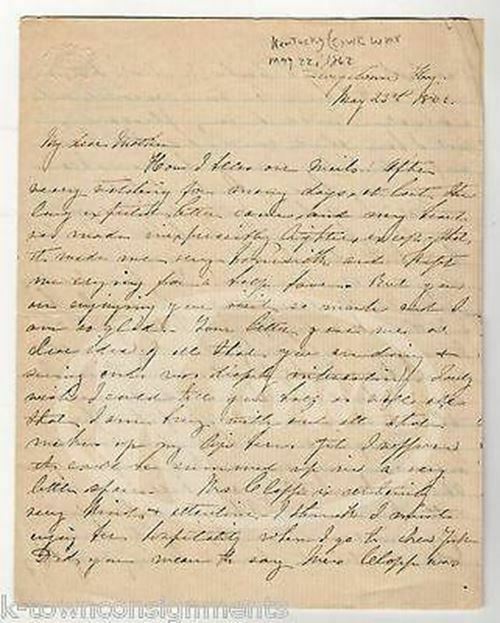 Kentucky Civil War
May 22, 1862
Georgetown Ky.
May 23rd 1862.
My dear Mother
How I bless our Mails! After
weary watching for many days, at last, the
long expected letter came, and my heart
was made inexpressibly lighter, except that
it made me very homesick and kept
me crying for a half hour. But you
are enjoying your visit so much and I
am so glad. Your letter gave me a
clear idea of all that you are doing &
seeing and was deeply interesting. I only
wish I could tell you half as well all
that I am busy with and all that
makes up my life here. Yet I suppose
it could be summed up in a very
little space. Mrs Clapp is certainly
very kind & attentive. I think I must
enjoy her hospitality when I go to New York
Did you mean to say Miss Clapp was
k-townconsignments